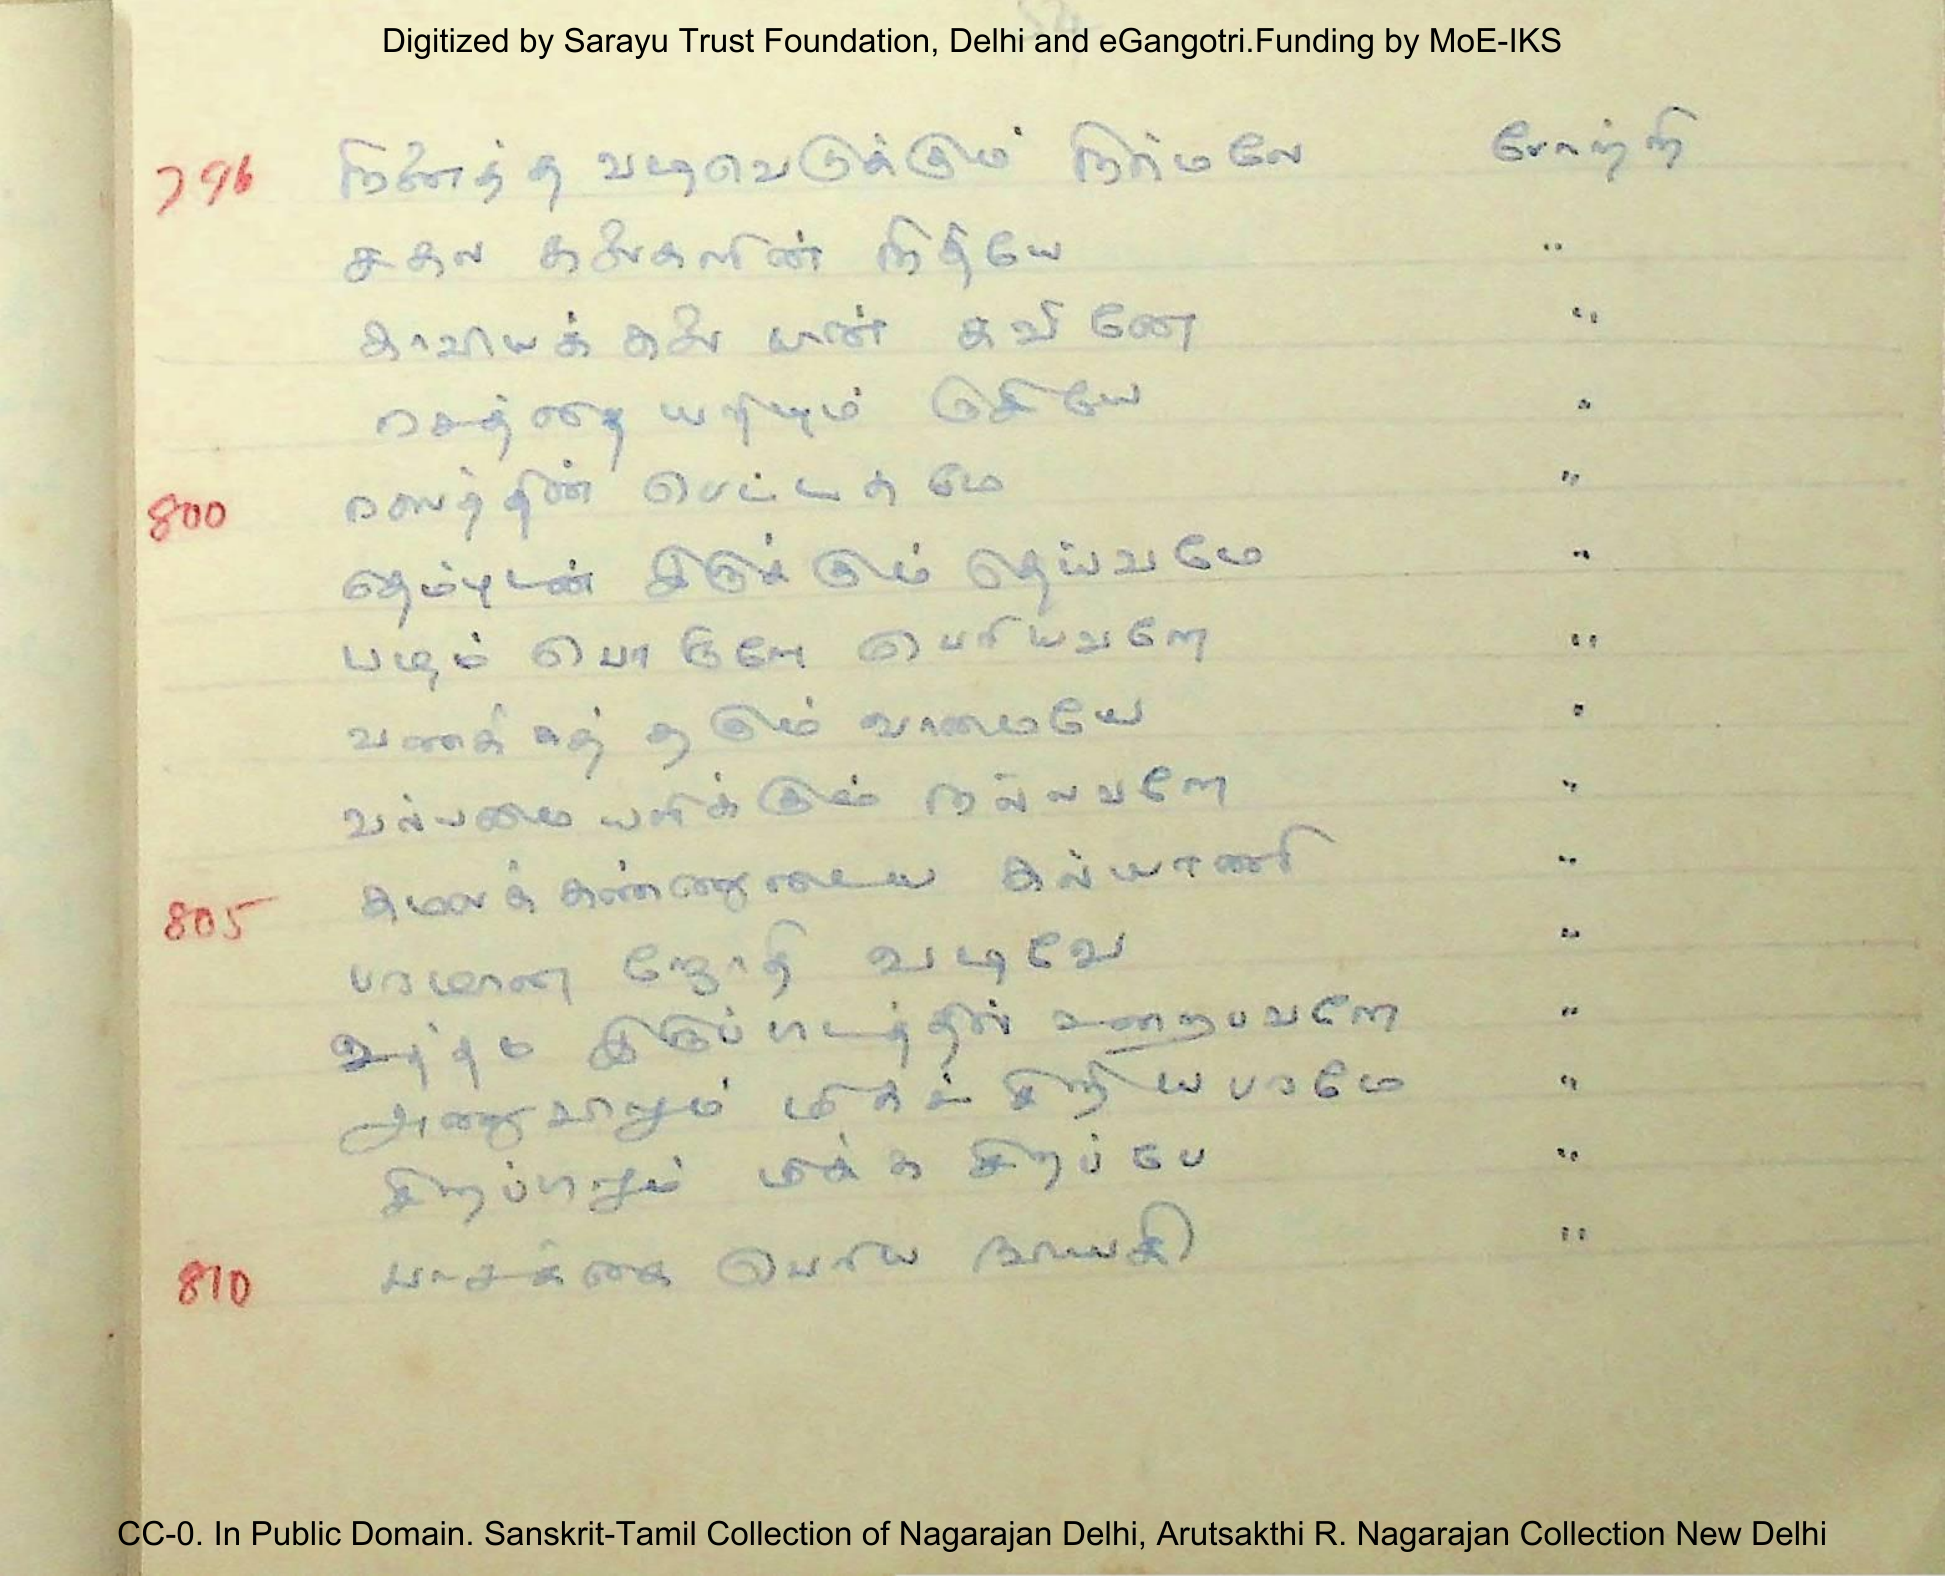 Digitized by Sarayu Trust Foundation, Delhi and eGangotri.Funding by MoE-IKS
796 நினைத்த வடிவெடுக்கும் நிர்மலே போற்றி
சகல கலைகளின் நிதியே "
காவியக் கலை யான் கவினே "
ரசத்தை யறியும் ருசியே "
800 ரஸத்தின் பெட்டகமே "
தெம்புடன் இருக்கும் தெய்வமே "
பழம் பொருளே பெரியவளே "
தரும் வாமையே "
வல்லமை யளிக்கும் நல்லவளே "
805 கமலக் கண்ணுடைய கல்யாணி "
பரமான ஜோதி வடிவே "
இருப்பிடத்தில் உறைபவளே "
அணுவிலும் மிகச் சிறிய பரமே "
சிறப்பிலும் மிக்க சிறப்பே "
810 பெரிய நாயகி "
CC-0. In Public Domain. Sanskrit-Tamil Collection of Nagarajan Delhi, Arutsakthi R. Nagarajan Collection New Delhi